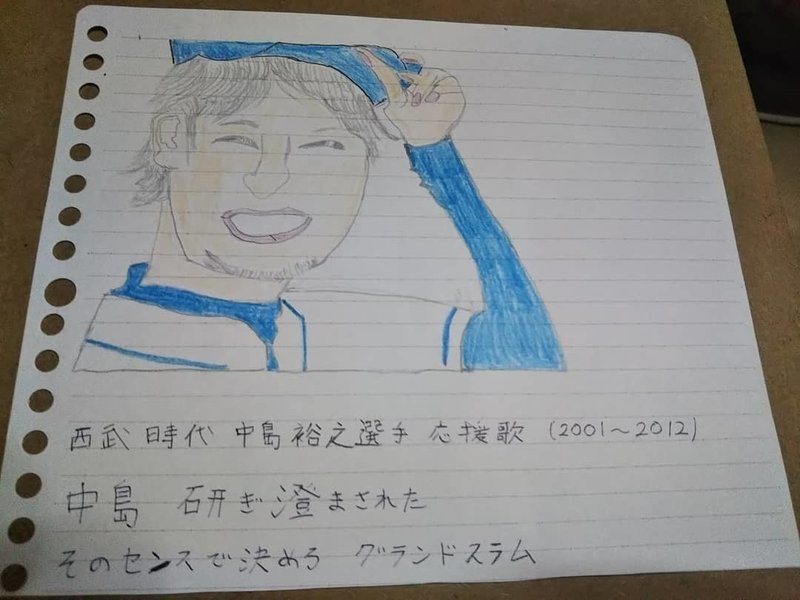 西武時代 中島裕之選手 応援歌 (2001～2012)
中島 研ぎ澄まされた
そのセンスで決めろ グランドスラム